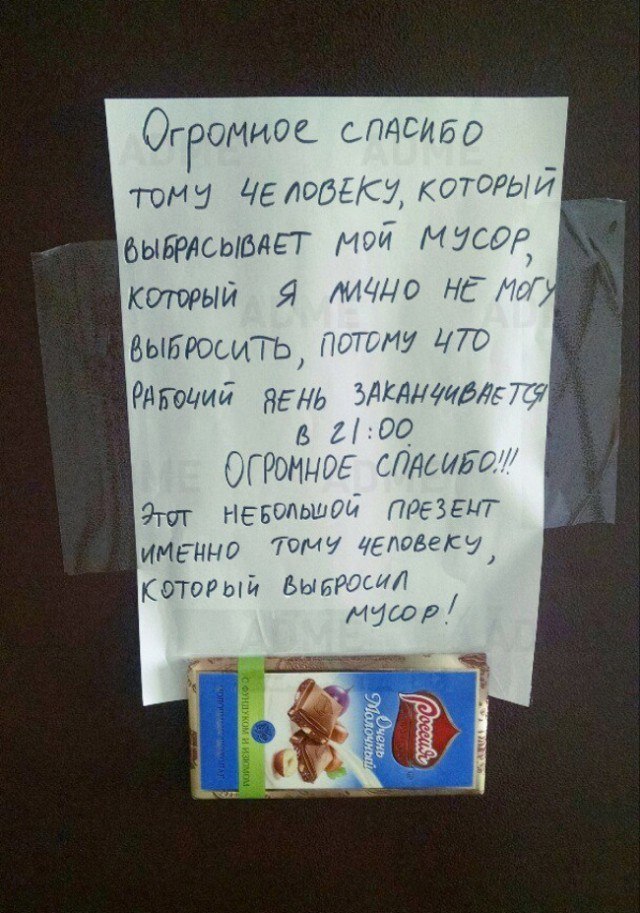 Огромное спасибо
тому человеку, который
выбрасывает мой мусор,
который я лично не могу
выбросить, потому что
рабочий день заканчивается
в 21:00
Огромное спасибо!!!
Этот небольшой презент
именно тому человеку,
который выбросил
мусор!
Россия
Очень
Молочный
С ФУНДУКОМ И ИЗЮМОМ
ADME